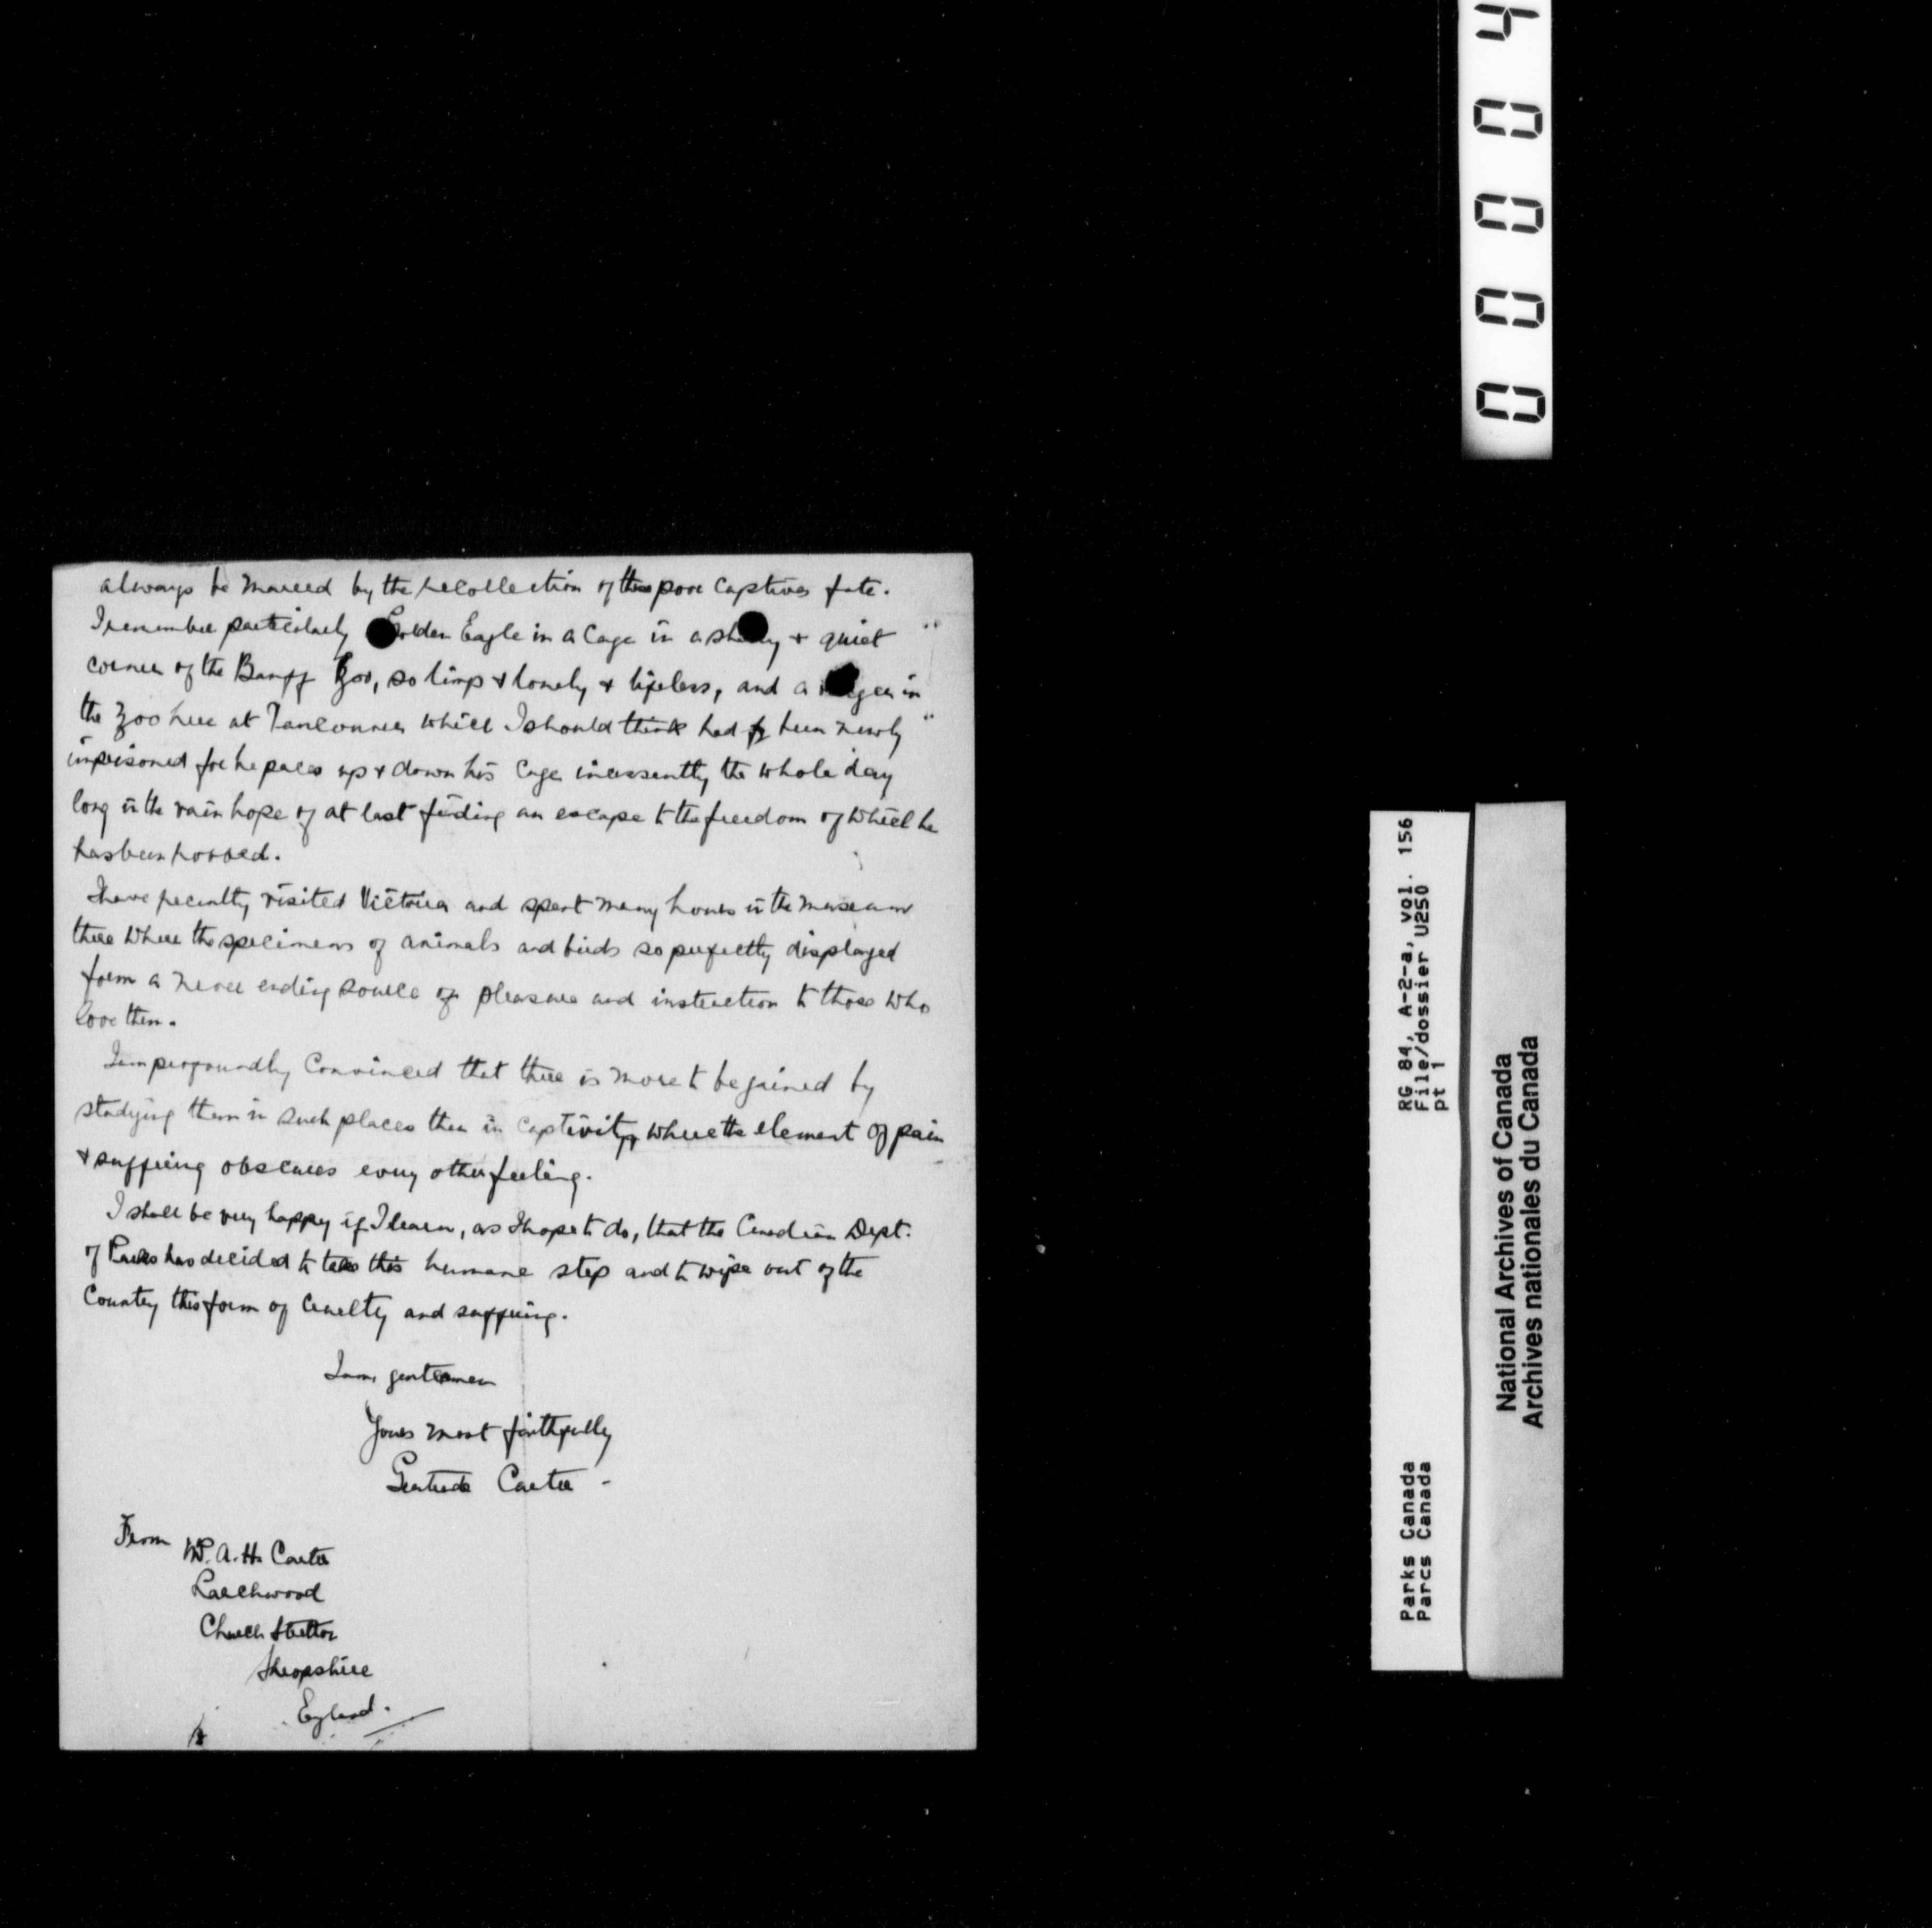 always be marred by the recollection of these poor captives fate.
I remember particularly Golden Eagle in a Cage in a & quiet
corner of the Banff Zoo, so limp & lonely & lifeless, and a in
the Zoo here at Vancouver which I should think had been newly
imprisoned for he paces up & down his Cage incessantly the whole day
long in the vain hope of at last finding an escape to the freedom of which he
has been robbed.
I have recently visited Victoria and spent many hours in the museum
there where the specimens of animals and birds so perfectly displayed
form a never ending source of pleasure and instruction to those who
love them.
I am profoundly Convinced that there is more to be gained by
studying them in such places than in captivity where the element of pain
& suffering obscures every other feeling.
I shall be very happy if I learn, as I hope to do, that the Canadian Dept.
of Parks has decided to take this humane step and to wipe out of the
Country this form of Cruelty and suffering.
I am, gentlemen
Yours most faithfully
Gertrude Carter -
From W. A. H. Carter
Larchwood
Church Stretton
Shropshire
England.
0 0 0 0 4
RG 84, A-2-a, vol. 156
File/dossier U250
pt 1
Parks Canada
Parcs Canada
National Archives of Canada
Archives nationales du Canada